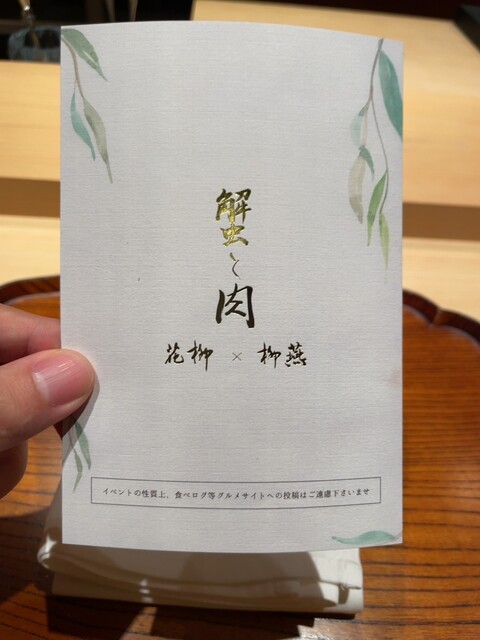 蟹と肉
花柳 × 柳燕
イベントの性質上、食べログ等グルメサイトへの投稿はご遠慮下さいませ